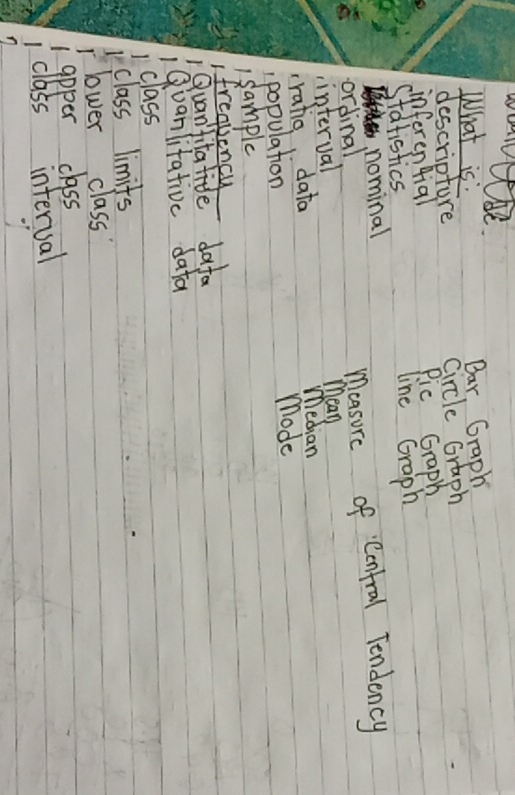 What is:
descripture
inferential
Statistics
nominal
ordinal
interval
ratio data
population
sample
frequency
Quantitative data
Qualitative data
class
class limits
lower class
upper class
class interval
Bar Graph
Circle Graph
Pie Graph
line Graph
Measure of Central Tendency
Mean
Median
Mode